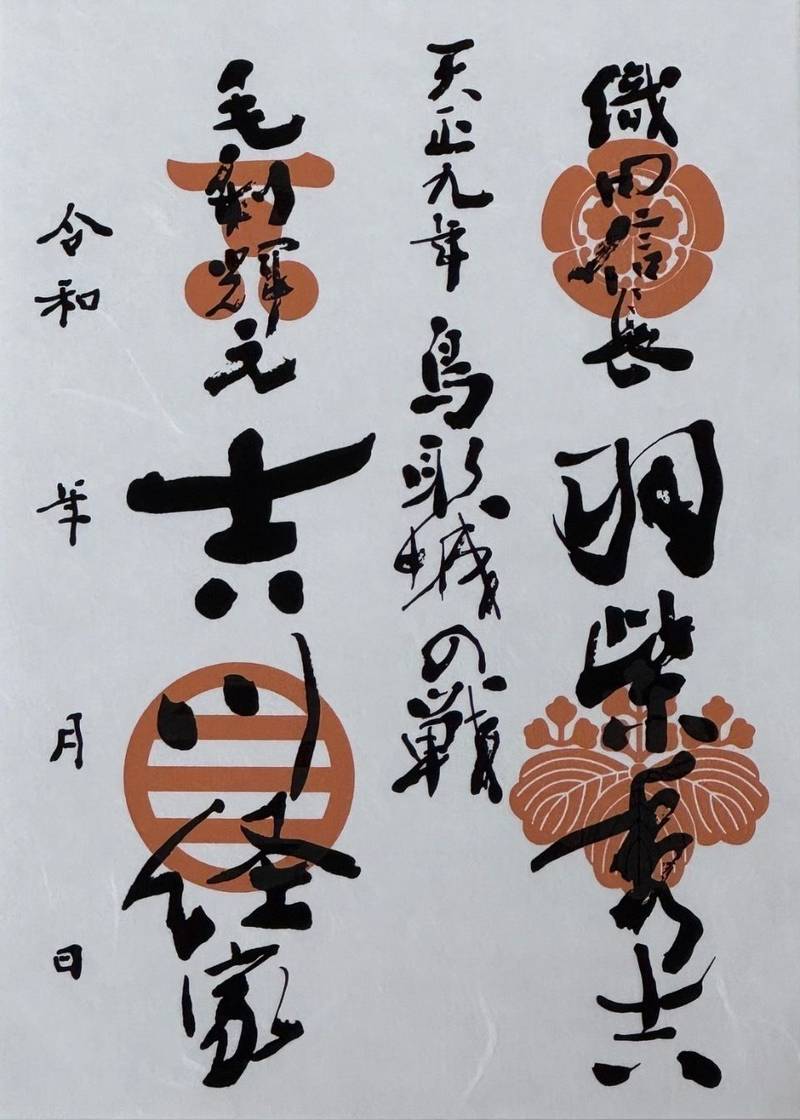 織田信長 羽柴秀吉
天正九年 鳥取城の戦
毛利輝元 吉川経家
令和 年 月 日